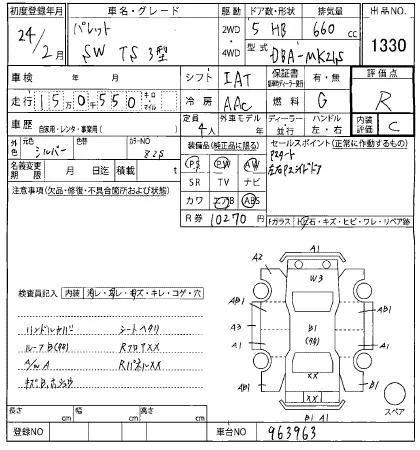 初度登録年月 車名・グレード 駆動 ドア数・形状 排気量 出品NO.
24/2月 パレット SW TS 3型 2WD ・ 4WD 5 HB 660cc 1330
型式 DBA-MK21S
車検 年 月 シフト IAT 保証書 有・無 評価点
走行 15万0550 キロ・マイル 冷房 AAC 燃料 G R
車歴 自家用・レンタ・事業用( ) 定員 4人 外車モデル 年 ディーラー・並行 ハンドル 左・右 内装評価 C
外色 元色 シルバー 色替 カラーNO Z2S
装備品(純正品に限る) セールスポイント(正常に作動するもの)
名義変更期限 月 日迄 積載 t
PS PW AW
Pスタート
SR TV ナビ
左右Pスライドドア
注意事項(欠品・修復・不具合箇所および状態)
カワ エアB ABS
R券 10270円
Fガラス
石・キズ・ヒビ・ワレ・リペア跡
A1
A2
W3
検査員記入 内装
コゲ・穴
AB1 AB1
ハンドルカバー シートヘタリ
A3 B1 A1
ルーフB(多) RフロアXX
(多)
A/W A RパネルXX
A1 AB1
XX
B1
XX
A1
スペア
長さ cm 幅 cm 高さ cm
登録NO 車台NO 963963